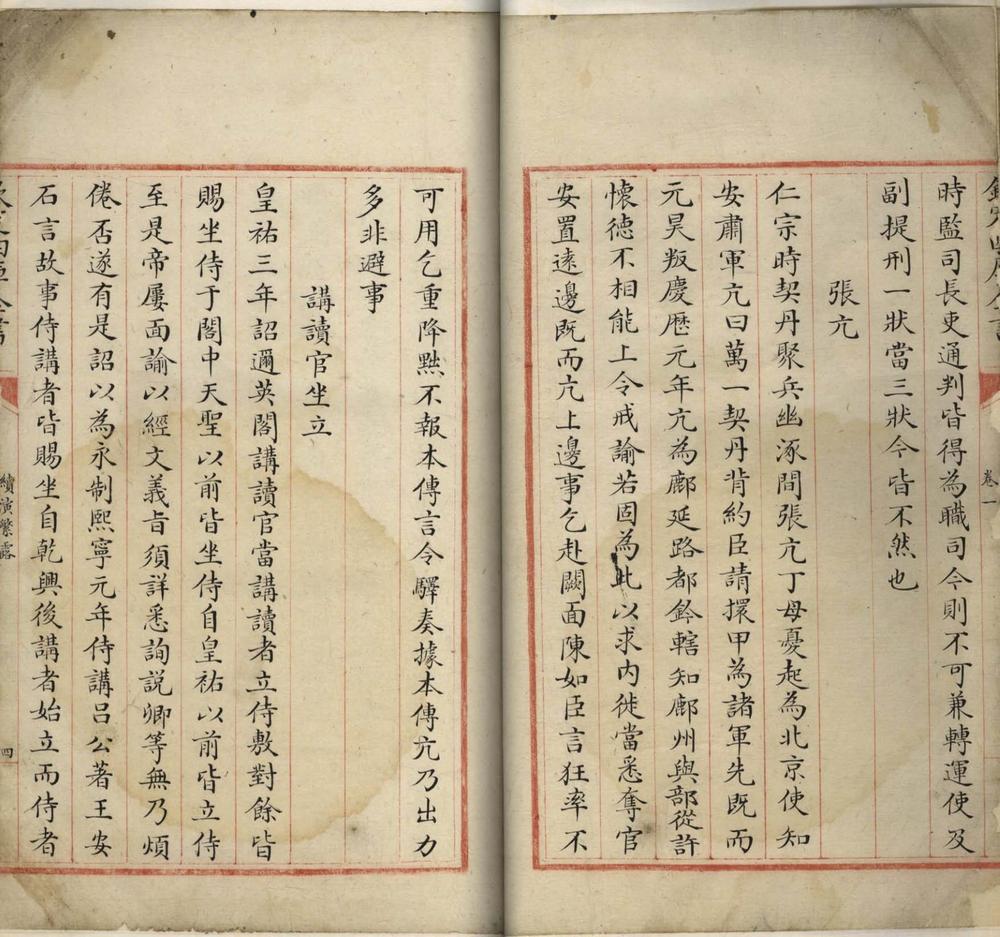 時監司長吏通判皆得為職司今則不可兼轉運使及
副提刑一狀當三狀今皆不然也
張亢
仁宗時契丹聚兵幽涿間張亢丁母憂起為北京使知
安肅軍亢曰萬一契丹背約臣請擐甲為諸軍先既而
元昊叛慶歷元年亢為鄜延路都鈐轄知鄜州與部從許
懷德不相能上令戒諭若固為此以求内徙當悉奪官
安置遠邊既而亢上邊事乞赴闕面陳如臣言狂率不
卷一
可用乞重降黜不報本傳言令驛奏據本傳亢乃出力
多非避事
講讀官坐立
皇祐三年詔邇英閣講讀官當講讀者立侍敷對餘皆
賜坐侍于閣中天聖以前皆坐侍自皇祐以前皆立侍
至是帝屢面諭以經文義㫖須詳悉詢説卿等無乃煩
倦否遂有是詔以為永制熙寧元年侍講吕公著王安
石言故事侍講者皆賜坐自乾興後講者始立而侍者
續演繁露
四